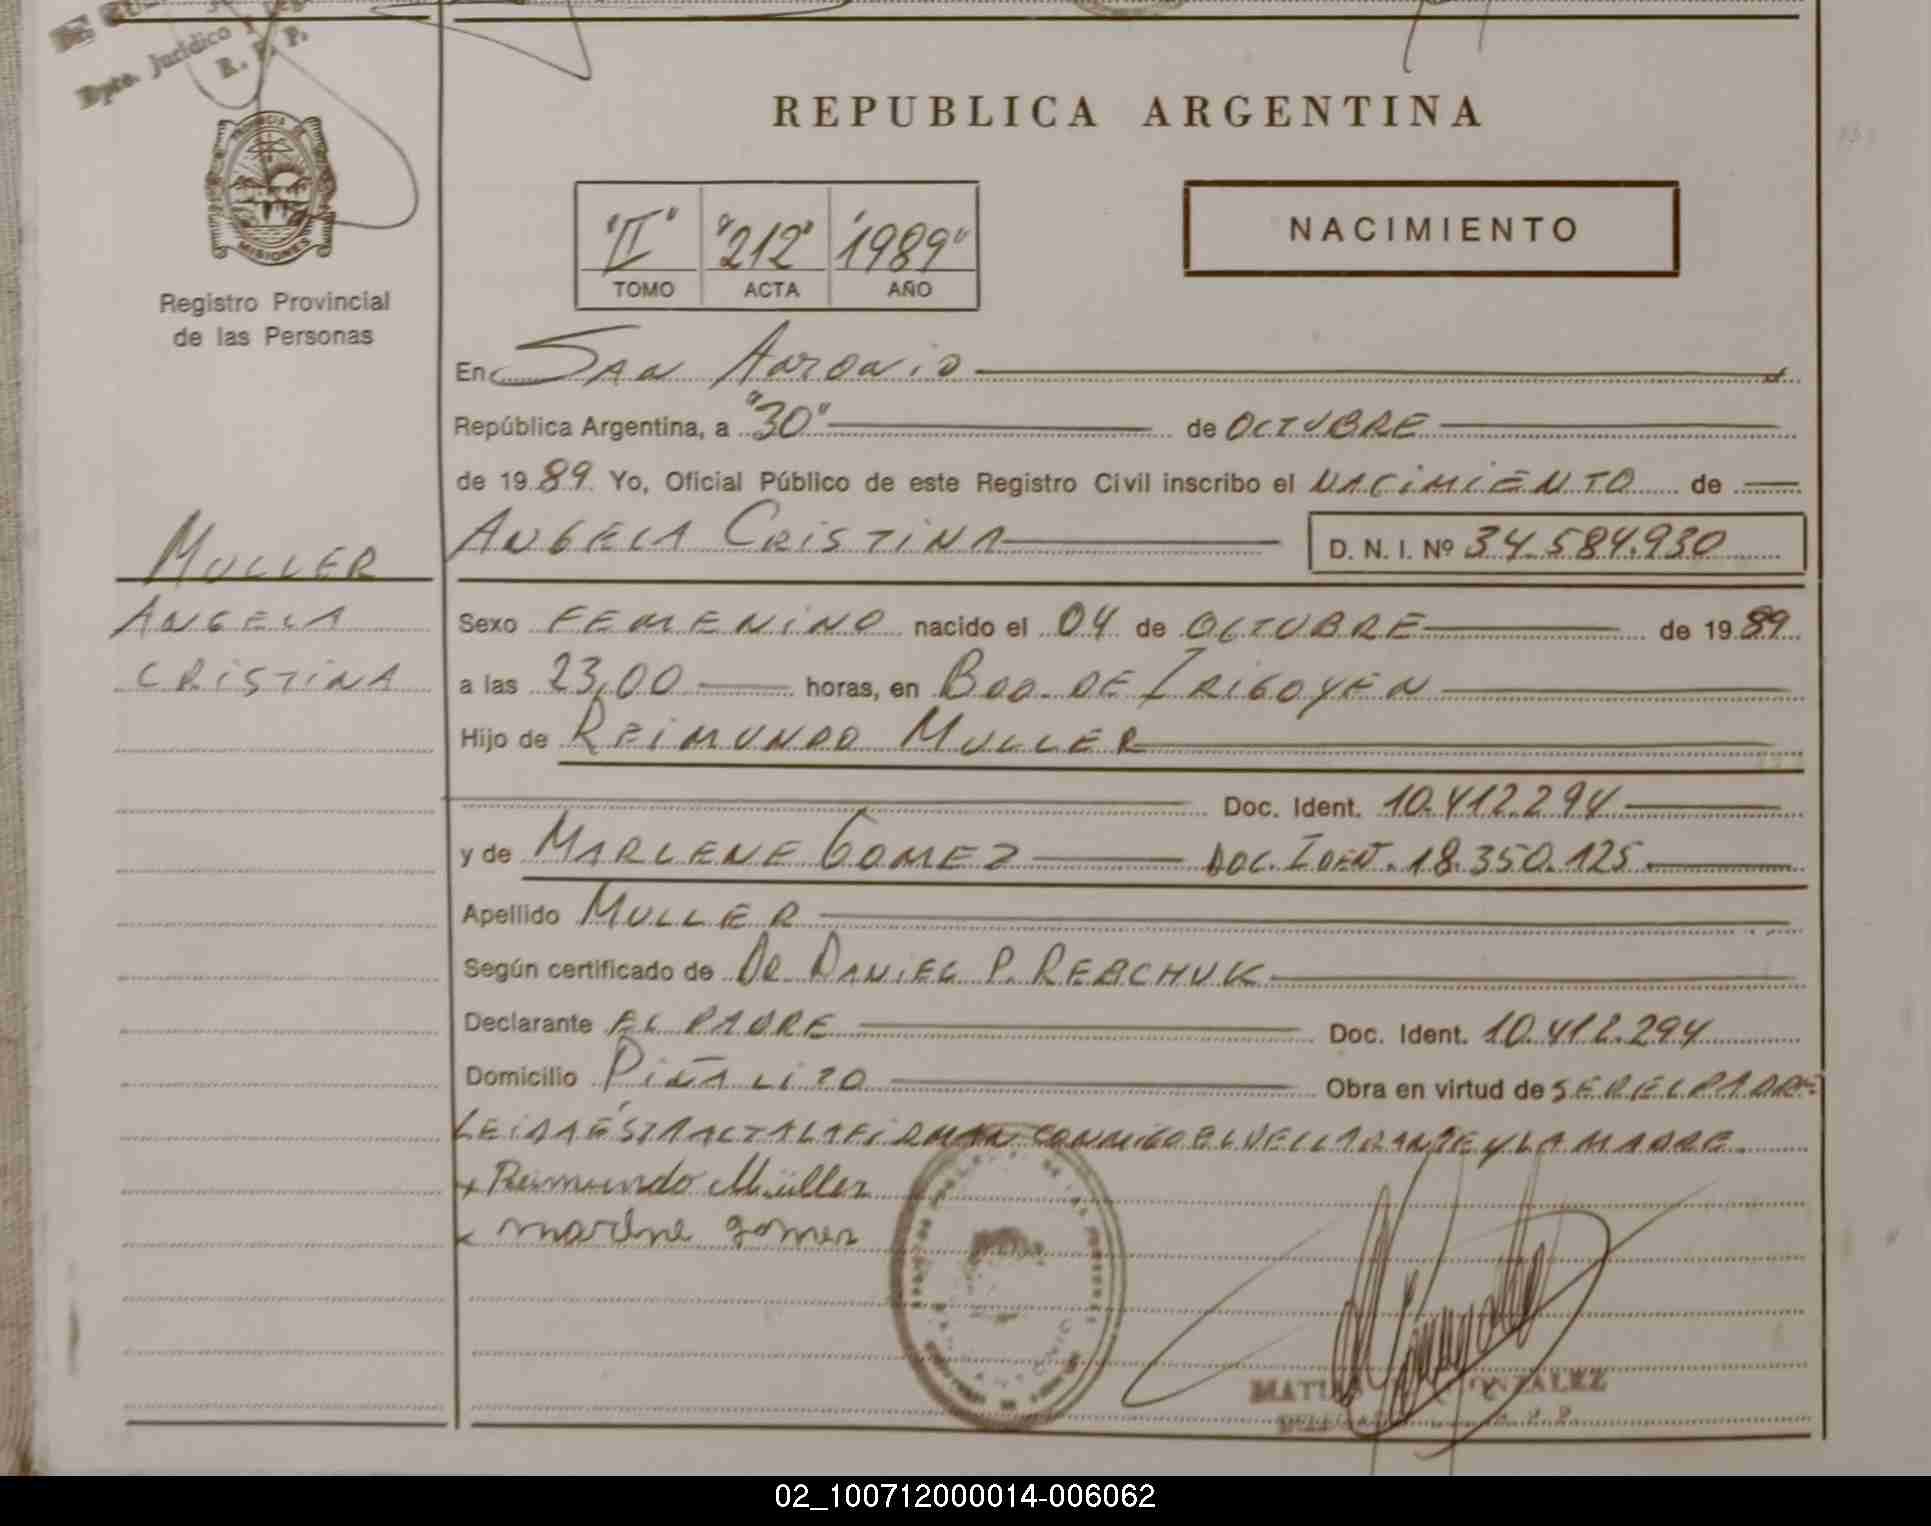 Dpto. Jurídico y
R. P. P.
PROVINCIA DE
MISIONES
Registro Provincial
de las Personas
REPUBLICA ARGENTINA
"II" "212" "1989"
TOMO ACTA AÑO
NACIMIENTO
En SAN ANTONIO
República Argentina, a "30" de OCTUBRE
de 1989 Yo, Oficial Público de este Registro Civil inscribo el NACIMIENTO de
ANGELA CRISTINA D. N. I. Nº 34.584.930
MULLER
ANGELA
CRISTINA
Sexo FEMENINO nacido el 04 de OCTUBRE de 1989
a las 23,00 horas, en BDO. DE IRIGOYEN
Hijo de REIMUNDO MULLER
Doc. Ident. 10.412.294
y de MARLENE GOMEZ DOC. IDENT. 18.350.125
Apellido MULLER
Según certificado de DR DANIEL P. REBCHUK
Declarante EL PADRE Doc. Ident. 10.412.294
Domicilio PIÑALITO Obra en virtud de SER EL PADRE
LEIDA ÉSTA ACTA LA FIRMAN CONMIGO EL DECLARANTE Y LA MADRE
x Reimundo Müller
x marlene gomez
GONZALEZ
02_100712000014-006062